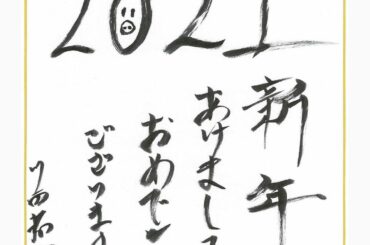 2021
新年
あけまして
おめで
ございま